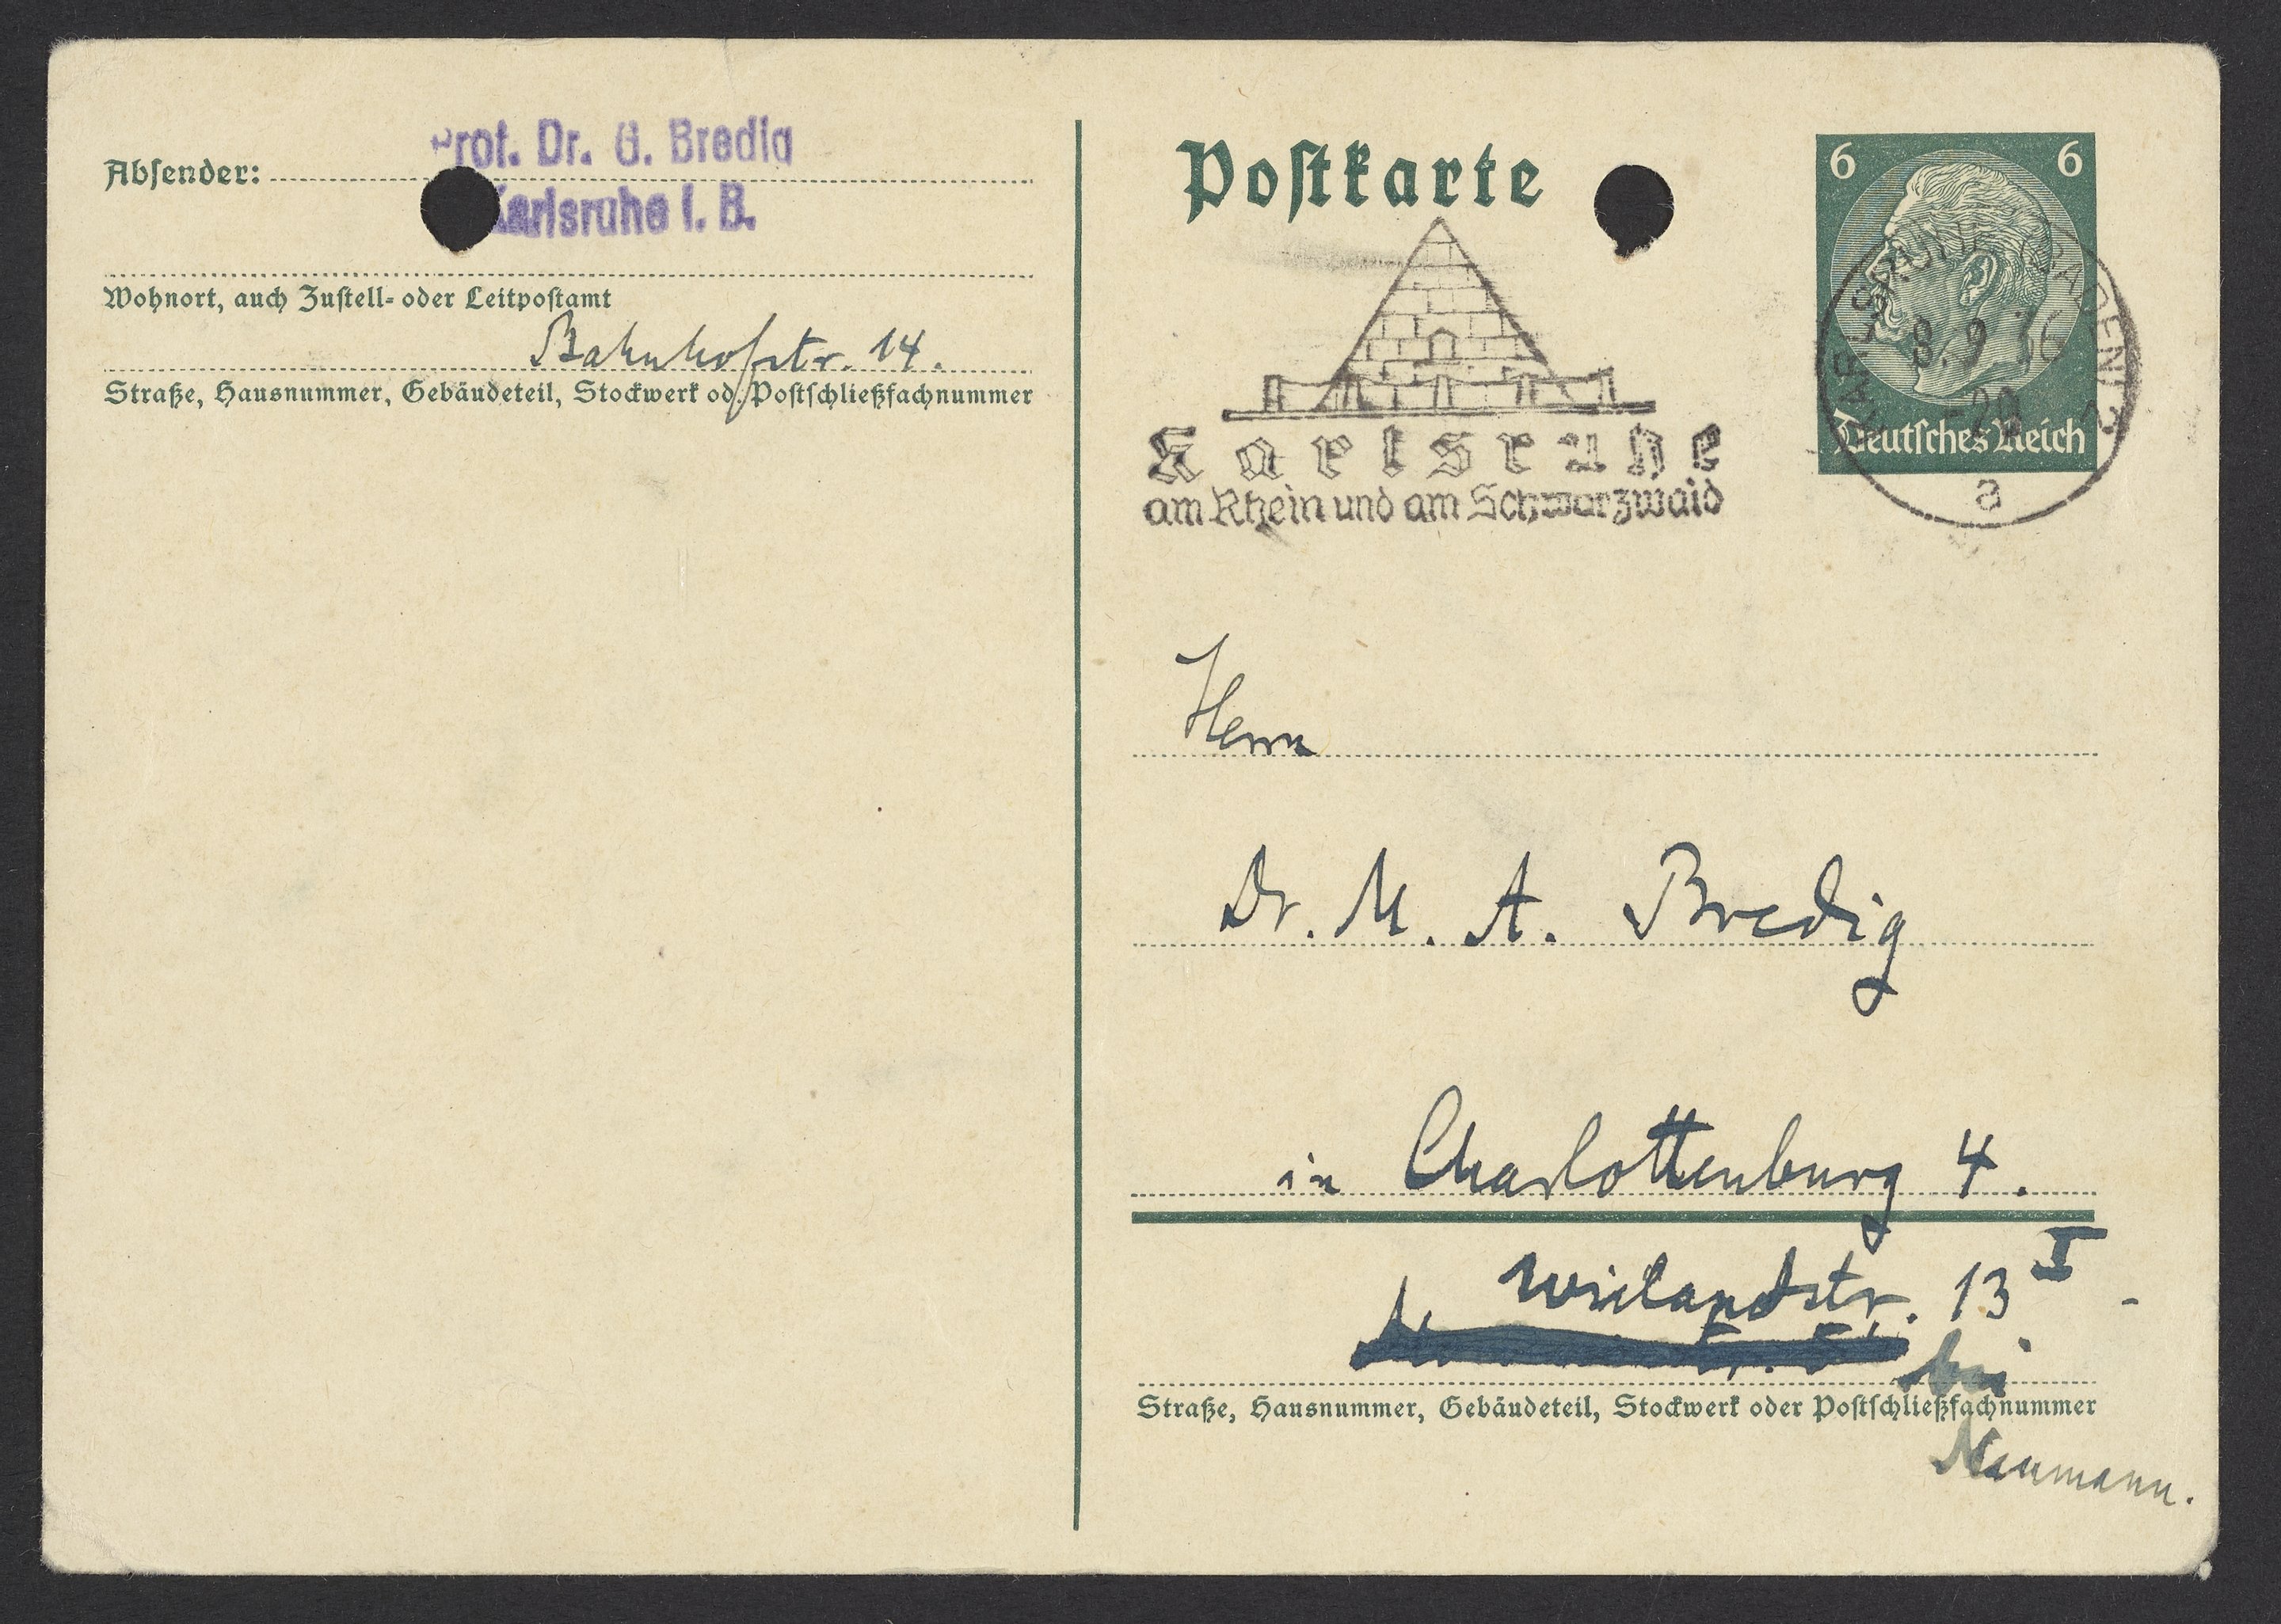 Prof. Dr. G. Bredig
Absender:
Karlsruhe i. B.
Wohnort, auch Zustell- oder Leitpostamt
Bahnhofstr. 14.
Straße, Hausnummer, Gebäudeteil, Stockwerk od. Postschließfachnummer
Postkarte
6 6
Deutsches Reich
KARLSRUHE (BADEN) 2
8.9.36
-20
a
Karlsruhe
am Rhein und am Schwarzwald
Herrn
Dr. M. A. Bredig
in Charlottenburg 4.
Wielandstr. 13 I
bei
Straße, Hausnummer, Gebäudeteil, Stockwerk oder Postschließfachnummer
Naumann.